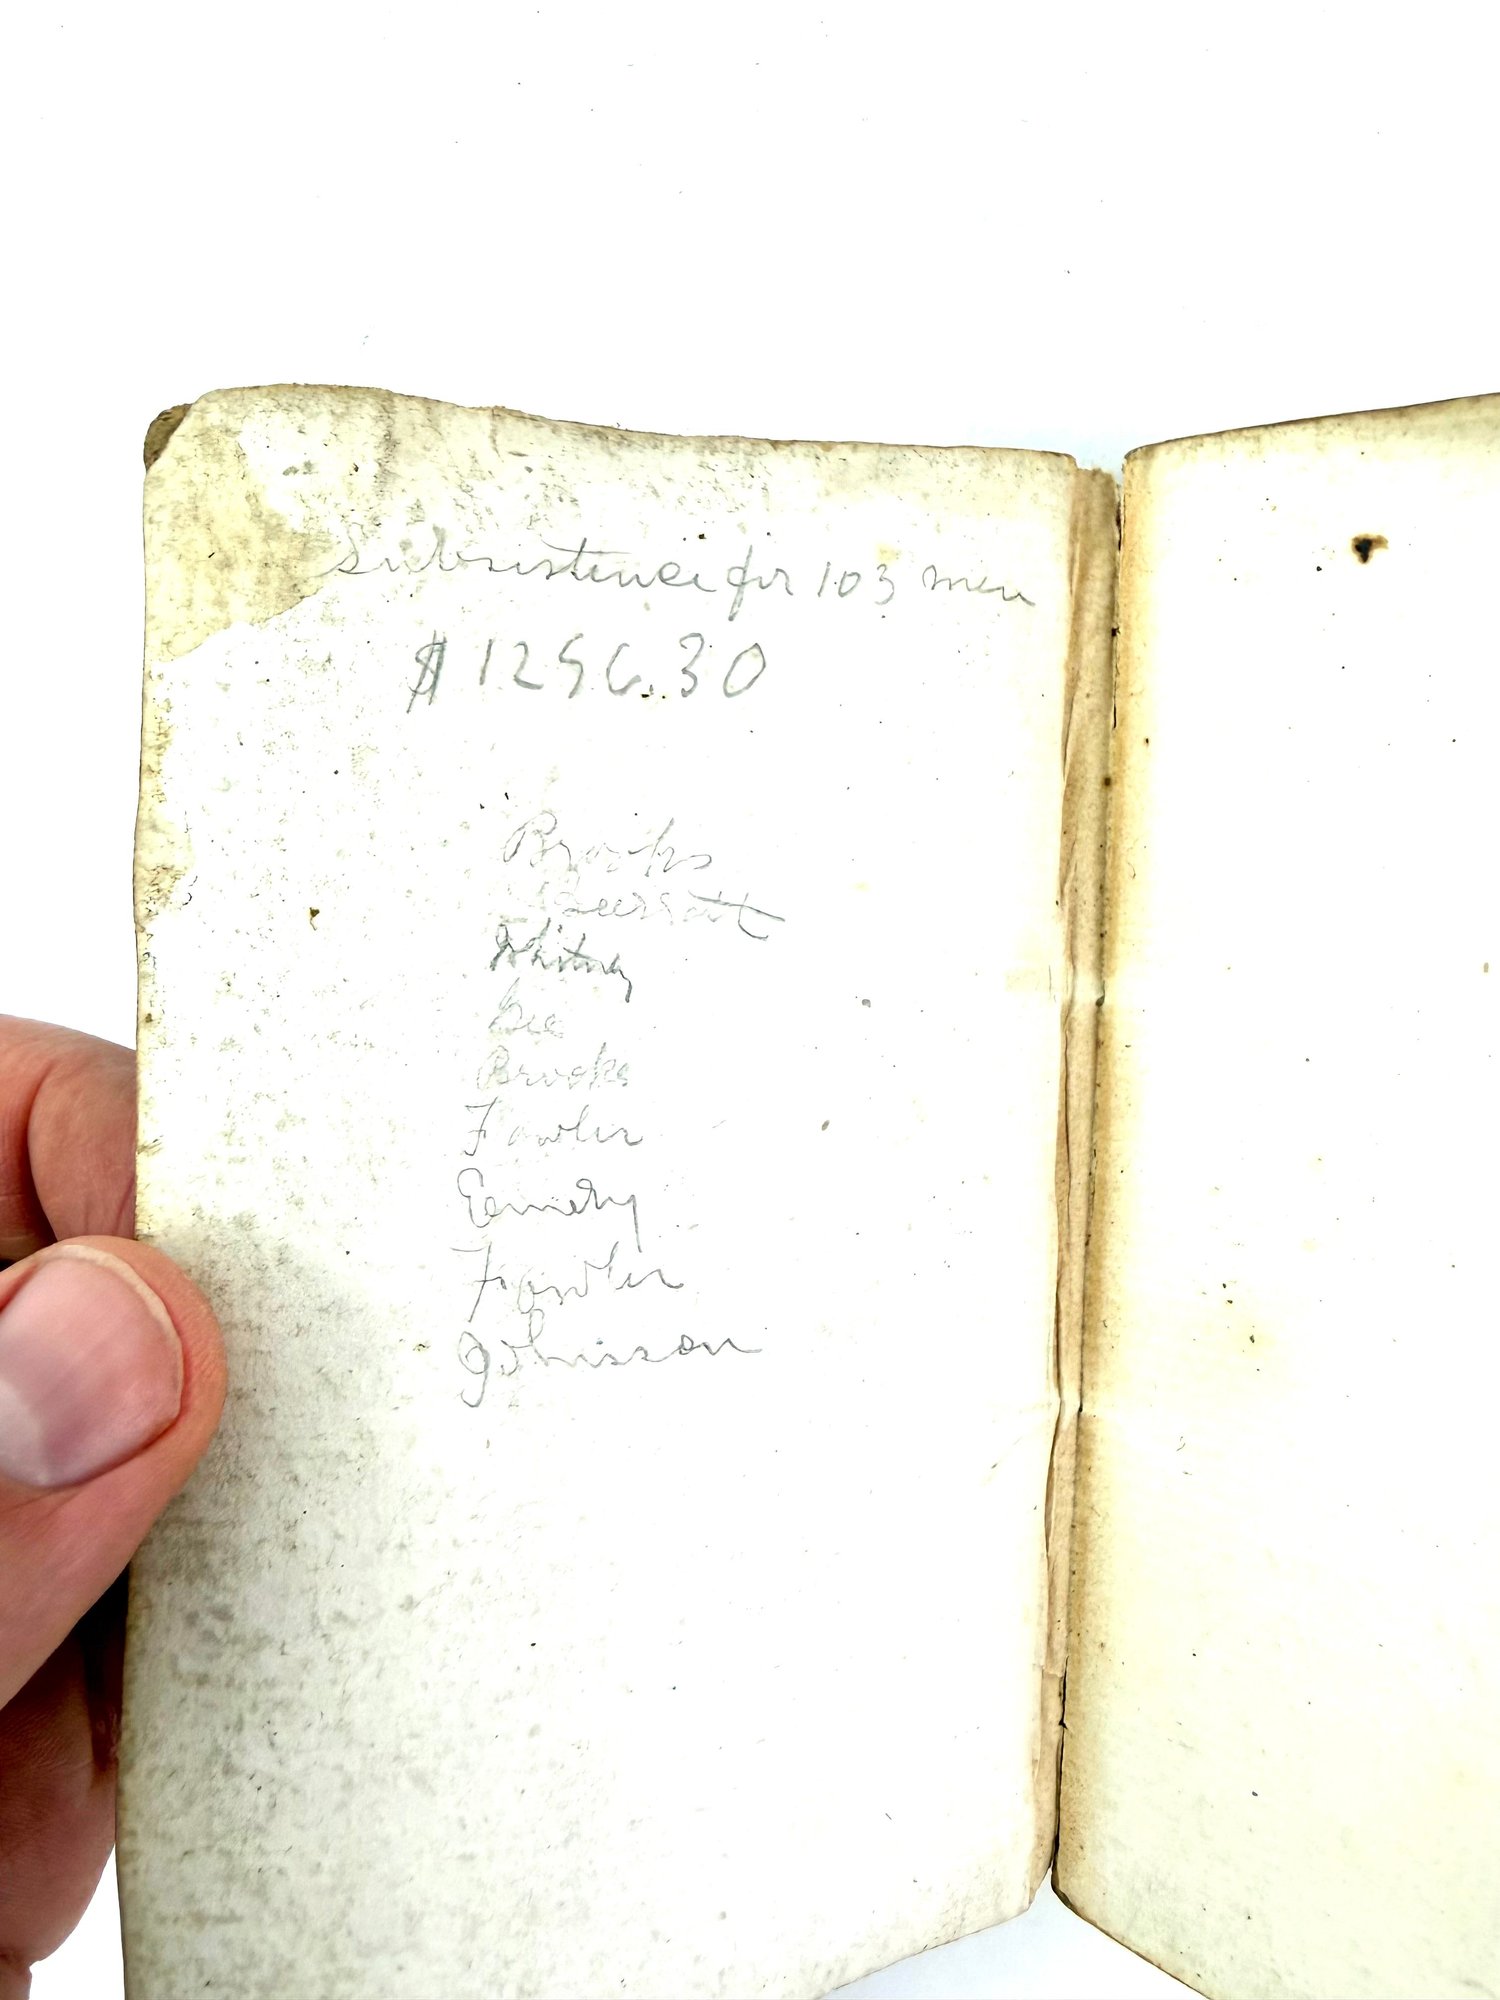 Subsistence for 103 men
$1256.30
Brooks
Whitney
Gee
Brooks
Fowler
Emery
Fowler
Johnsson